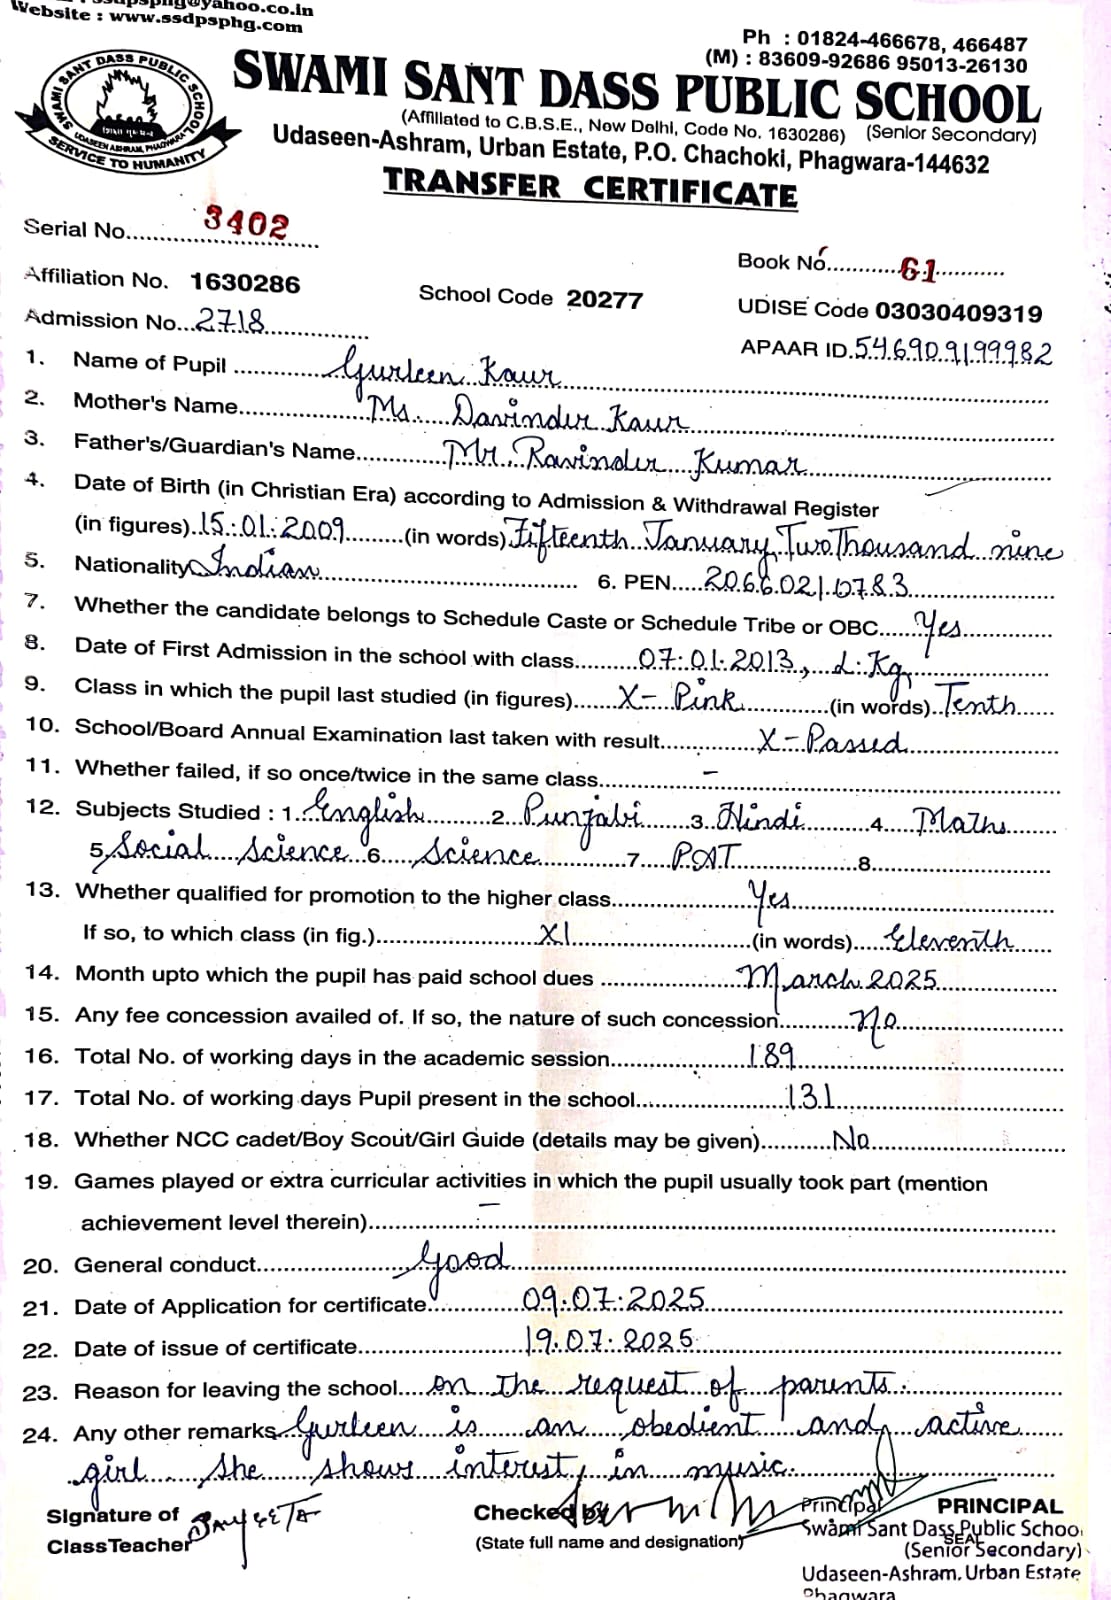 ssdpsphg@yahoo.co.in
Website : www.ssdpsphg.com
Ph : 01824-466678, 466487
(M) : 83609-92686 95013-26130
SWAMI SANT DASS PUBLIC SCHOOL
UDASEEN ASHRAM, PHAGWARA
SERVICE TO HUMANITY
SWAMI SANT DASS PUBLIC SCHOOL
(Affiliated to C.B.S.E., New Delhi, Code No. 1630286) (Senior Secondary)
Udaseen-Ashram, Urban Estate, P.O. Chachoki, Phagwara-144632
TRANSFER CERTIFICATE
Serial No. 3402
Book No. 61
Affiliation No. 1630286 School Code 20277 UDISE Code 03030409319
Admission No. 2718 APAAR ID. 546909199982
1. Name of Pupil Gurleen Kaur
2. Mother's Name Ms. Davinder Kaur
3. Father's/Guardian's Name Mr. Ravinder Kumar
4. Date of Birth (in Christian Era) according to Admission & Withdrawal Register
(in figures) 15.01.2009 (in words) Fifteenth January Two Thousand nine
5. Nationality Indian 6. PEN 20660210783
7. Whether the candidate belongs to Schedule Caste or Schedule Tribe or OBC Yes
8. Date of First Admission in the school with class 07.01.2013, L.Kg
9. Class in which the pupil last studied (in figures) X-Pink (in words) Tenth
10. School/Board Annual Examination last taken with result X-Passed
11. Whether failed, if so once/twice in the same class –
12. Subjects Studied : 1. English 2. Punjabi 3. Hindi 4. Maths
5. Social Science 6. Science 7. PAT 8.
13. Whether qualified for promotion to the higher class Yes
If so, to which class (in fig.) XI (in words) Eleventh
14. Month upto which the pupil has paid school dues March 2025
15. Any fee concession availed of. If so, the nature of such concession No
16. Total No. of working days in the academic session 189
17. Total No. of working days Pupil present in the school 131
18. Whether NCC cadet/Boy Scout/Girl Guide (details may be given) No
19. Games played or extra curricular activities in which the pupil usually took part (mention
achievement level therein) –
20. General conduct Good
21. Date of Application for certificate 09.07.2025
22. Date of issue of certificate 19.07.2025
23. Reason for leaving the school on the request of parents.
24. Any other remarks Gurleen is an obedient and active
girl. She shows interest in music.
Signature of
ClassTeacher
Checked by
(State full name and designation)
Principal PRINCIPAL
Swami Sant Dass Public School
SEAL
(Senior Secondary)
Udaseen-Ashram, Urban Estate
Phagwara